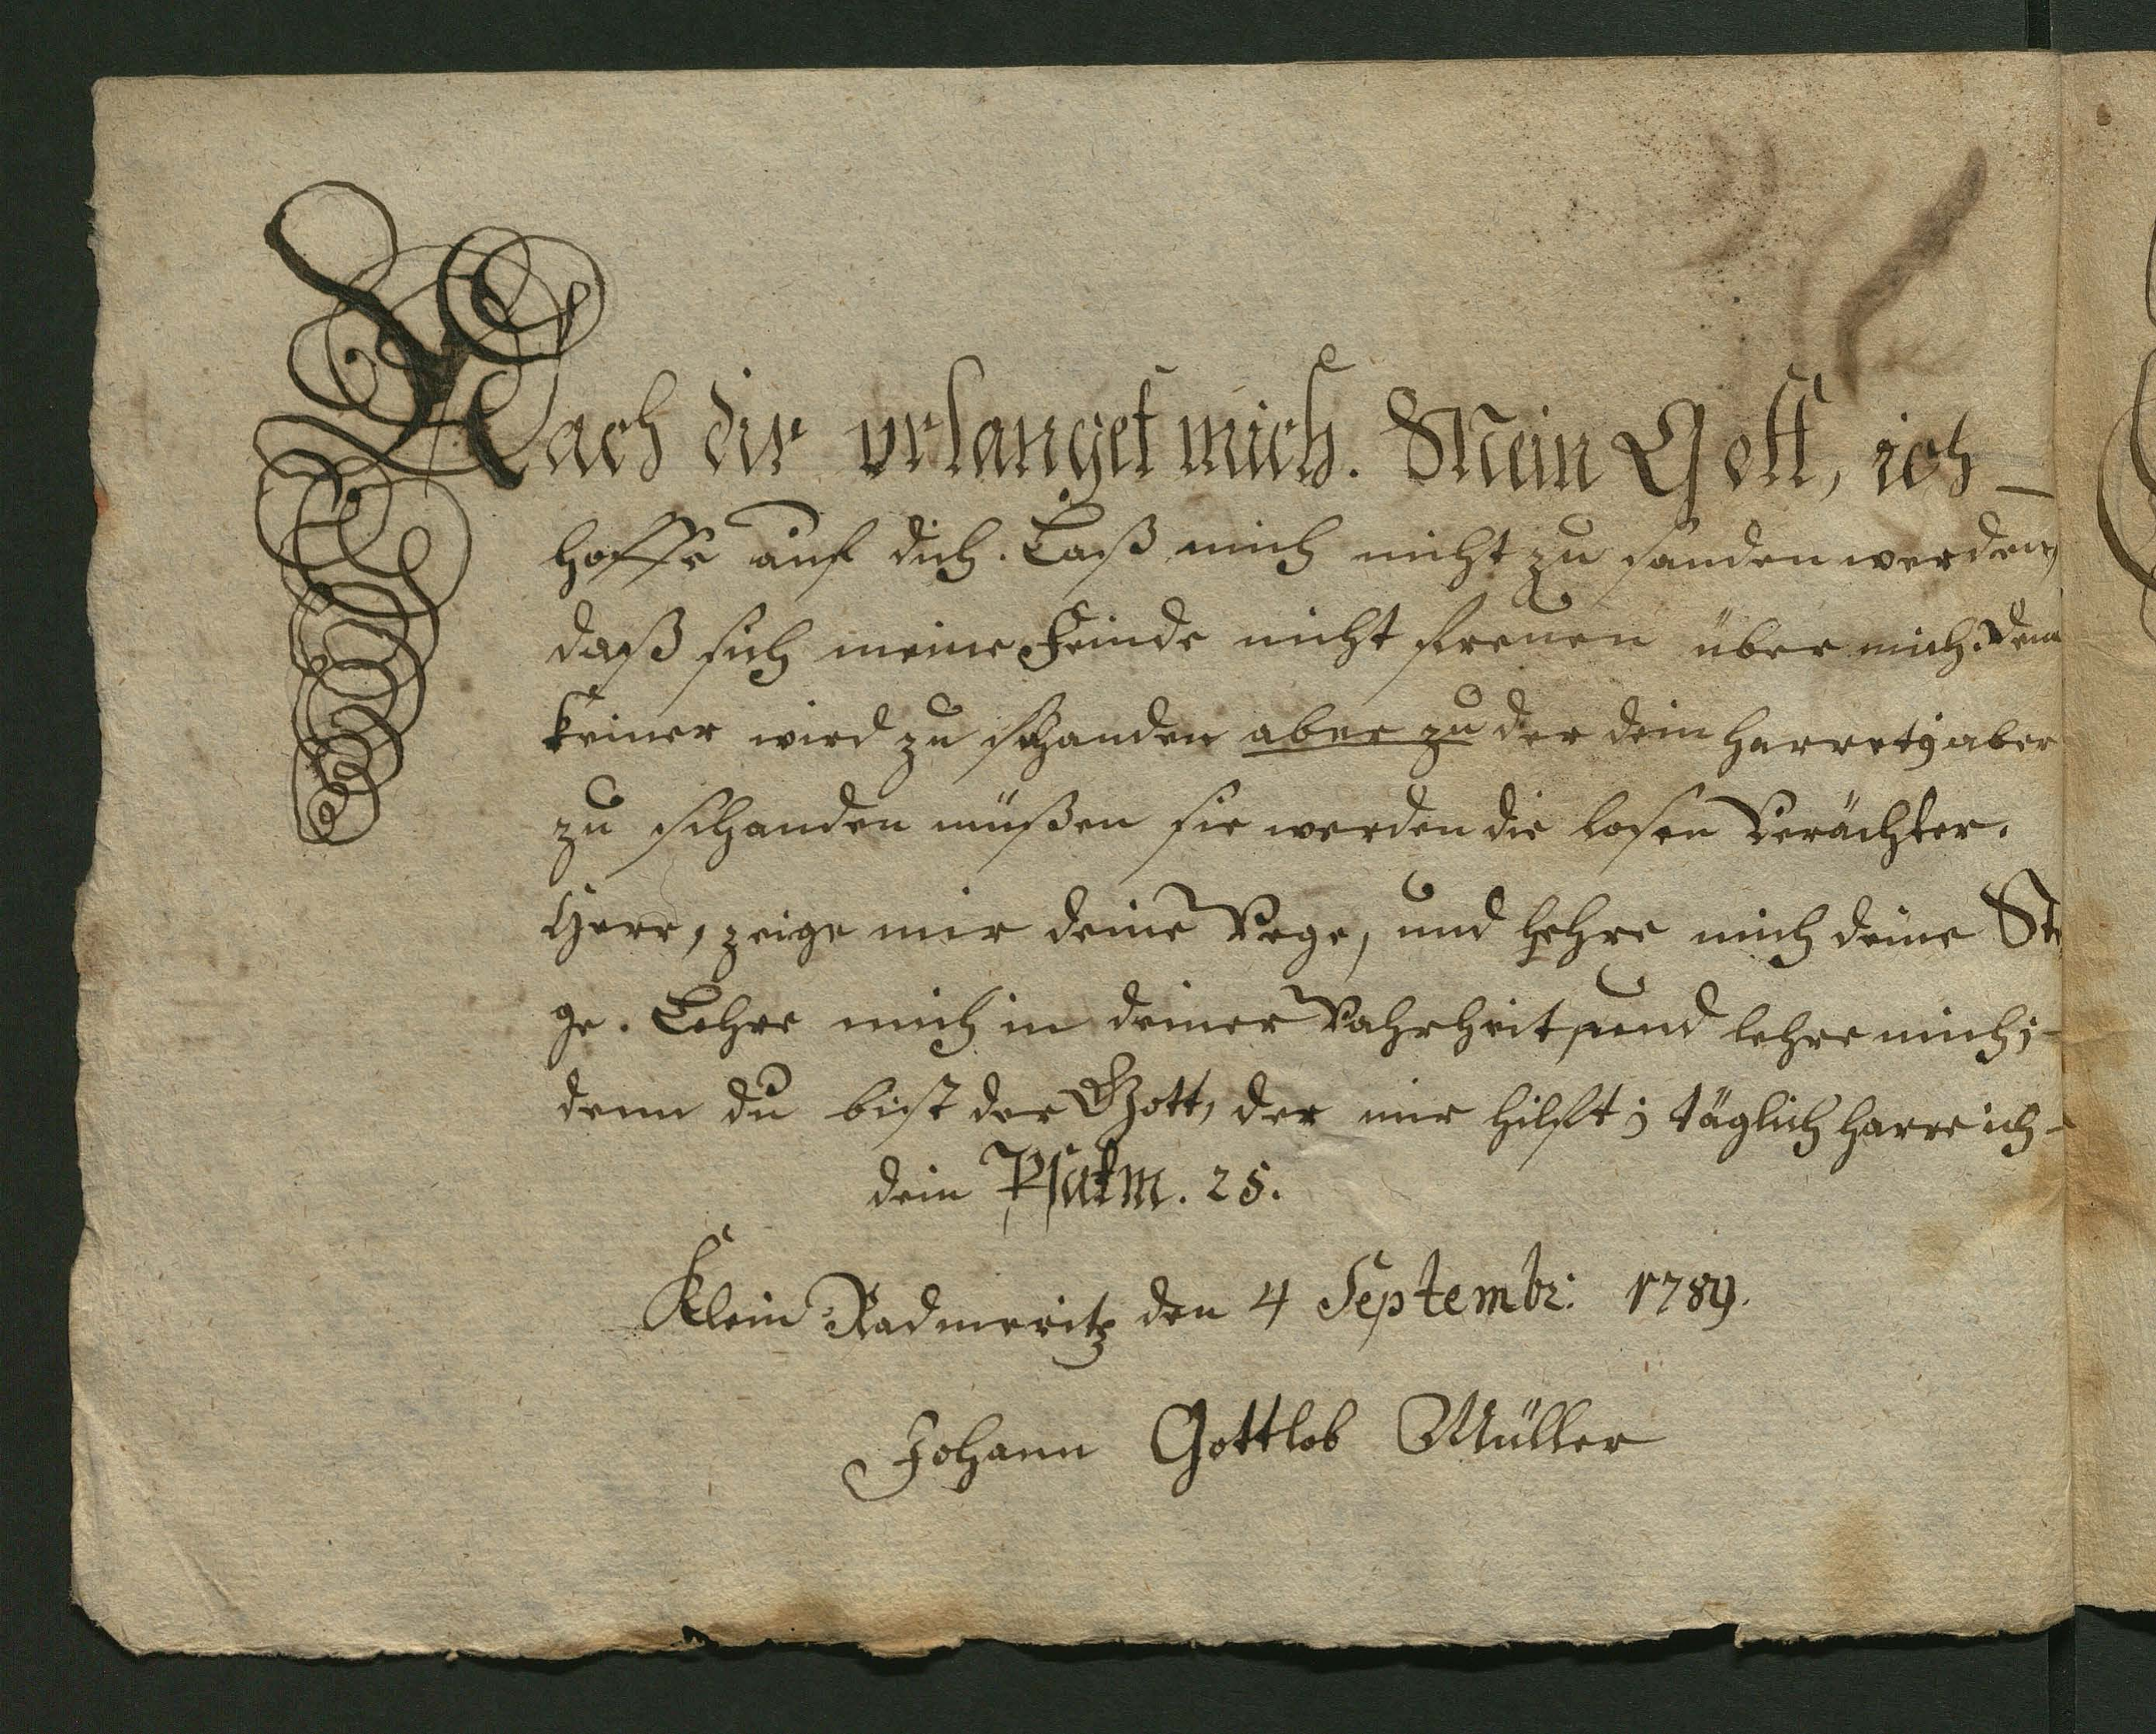 Nach dir vrlanget mich. Mein Gott, ich
hoffe auf dich. Laß mich nicht zu sanden werden,
daß sich meine Feinde nicht freuen über mich. Denn
keiner wird zu schanden aber zu der dein harret; aber
zu schanden müßen sie werden die losen Verächter.
Herr, zeige mir deine Wege, und lehre mich deine Ste
ge. Lehre mich in deiner Wahrheit, und lehre mich;
denn du bist der Gott, der mir hilft; täglich harre ich
dein Psalm. 25.
Klein Radmeritz den 4 Septembr: 1789.
Johann Gottlob Müller